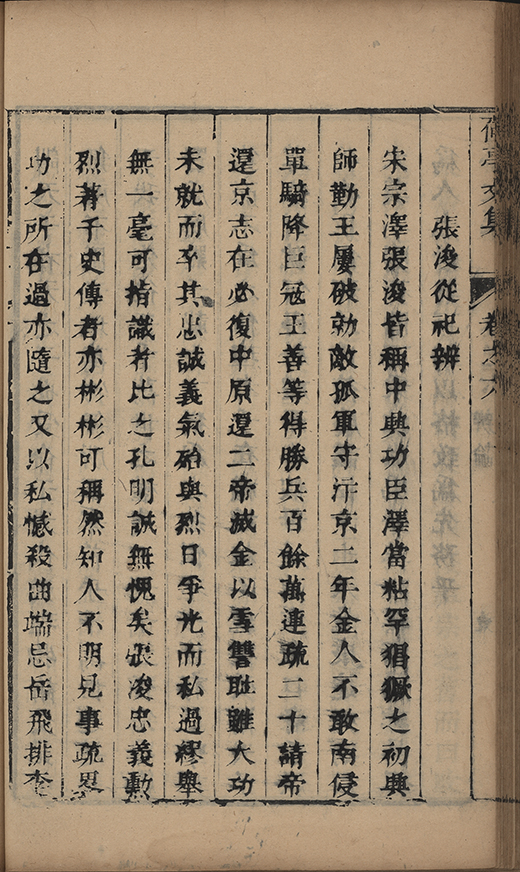 文集 卷之六
張浚從祀辨
宋宗澤張浚皆稱中興功臣澤當粘罕猖獗之初興
師勤王屢破勍敵孤軍守汴京二年金人不敢南侵
單騎降巨寇王善等得勝兵百餘萬連疏二十請帝
還京志在必復中原還二帝滅金以雪讐恥雖大功
未就而卒其忠誠義氣殆與烈日爭光而私過繆舉
無一毫可指議者比之孔明誠無愧矣張浚忠義勳
烈著于史傳者亦彬彬可稱然知人不明見事疏畧
功之所在過亦隨之又以私憾殺曲端忌岳飛排李